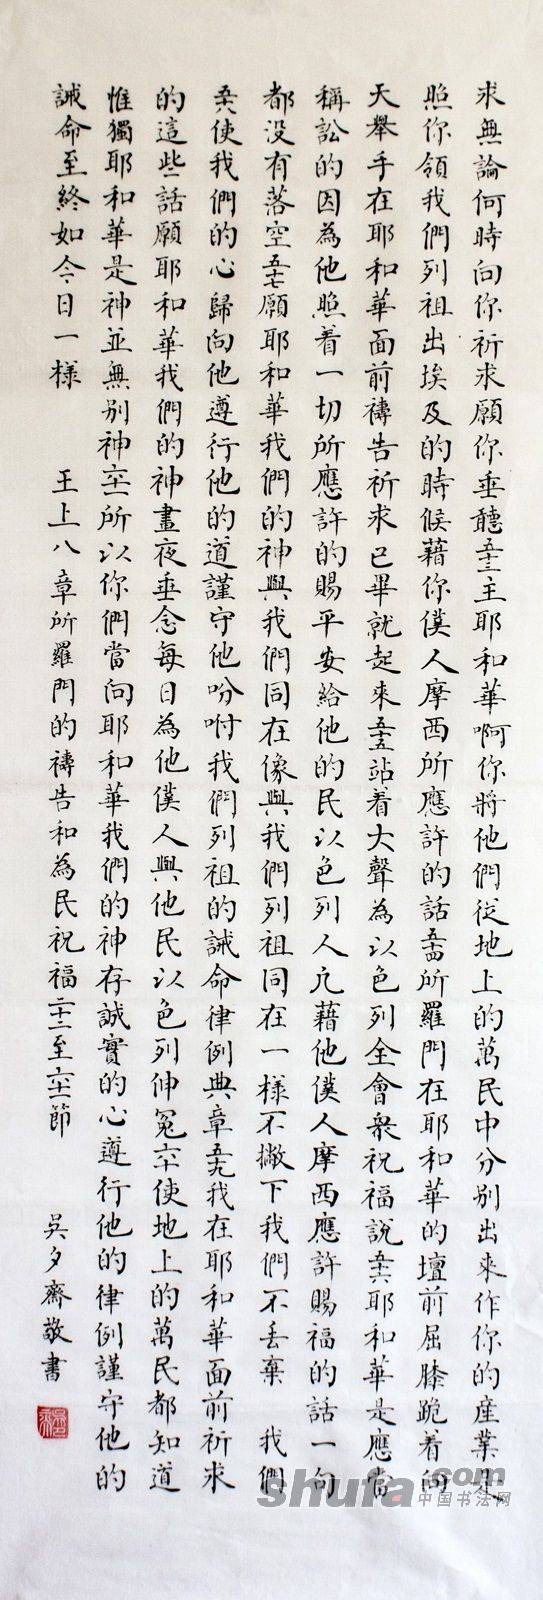 求無論何時向你祈求願你垂聽五十三主耶和華啊你將他們從地上的萬民中分別出來作你的產業是
照你領我們列祖出埃及的時候藉你僕人摩西所應許的話五十四所羅門在耶和華的壇前屈膝跪着向
天舉手在耶和華面前禱告祈求已畢就起來五十五站着大聲為以色列全會衆祝福說五十六耶和華是應當
稱訟的因為他照着一切所應許的賜平安給他的民以色列人凡藉他僕人摩西應許賜福的話一句
都没有落空五十七願耶和華我們的神與我們同在像與我們列祖同在一樣不撇下我們不丢棄 我們
五十八使我們的心歸向他遵行他的道謹守他吩咐我們列祖的誡命律例典章五十九我在耶和華面前祈求
的這些話願耶和華我們的神晝夜垂念每日為他僕人與他民以色列伸冤六十使地上的萬民都知道
惟獨耶和華是神並無別神六十一所以你們當向耶和華我們的神存誠實的心遵行他的律例謹守他的
誡命至終如今日一樣 王上八章所羅門的禱告和為民祝福二十二至六十一節 吳夕齋敬書
shufa.com
中国书法网